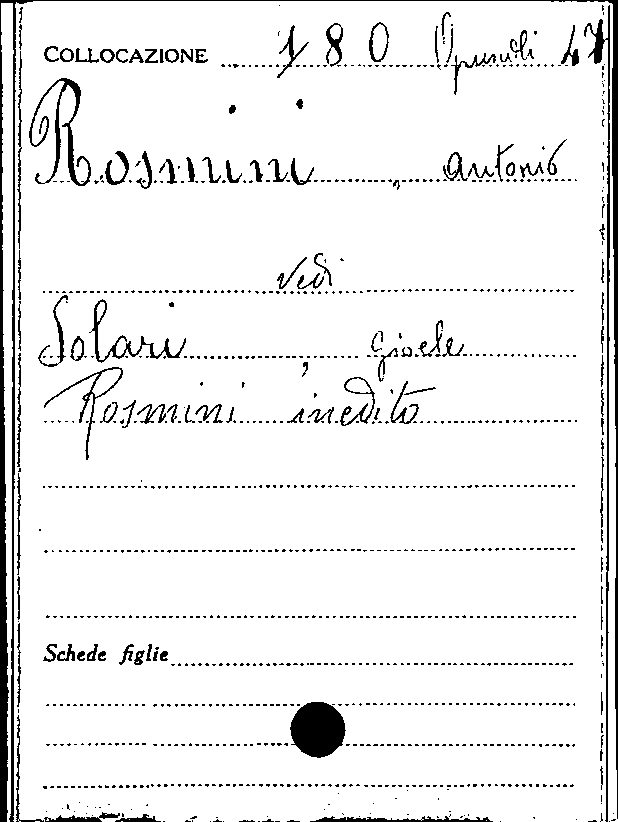 COLLOCAZIONE 180 Opuscoli 47
Rosmini, Antonio
Vedi
Solari, Gioele
Rosmini inedito
Schede figlie